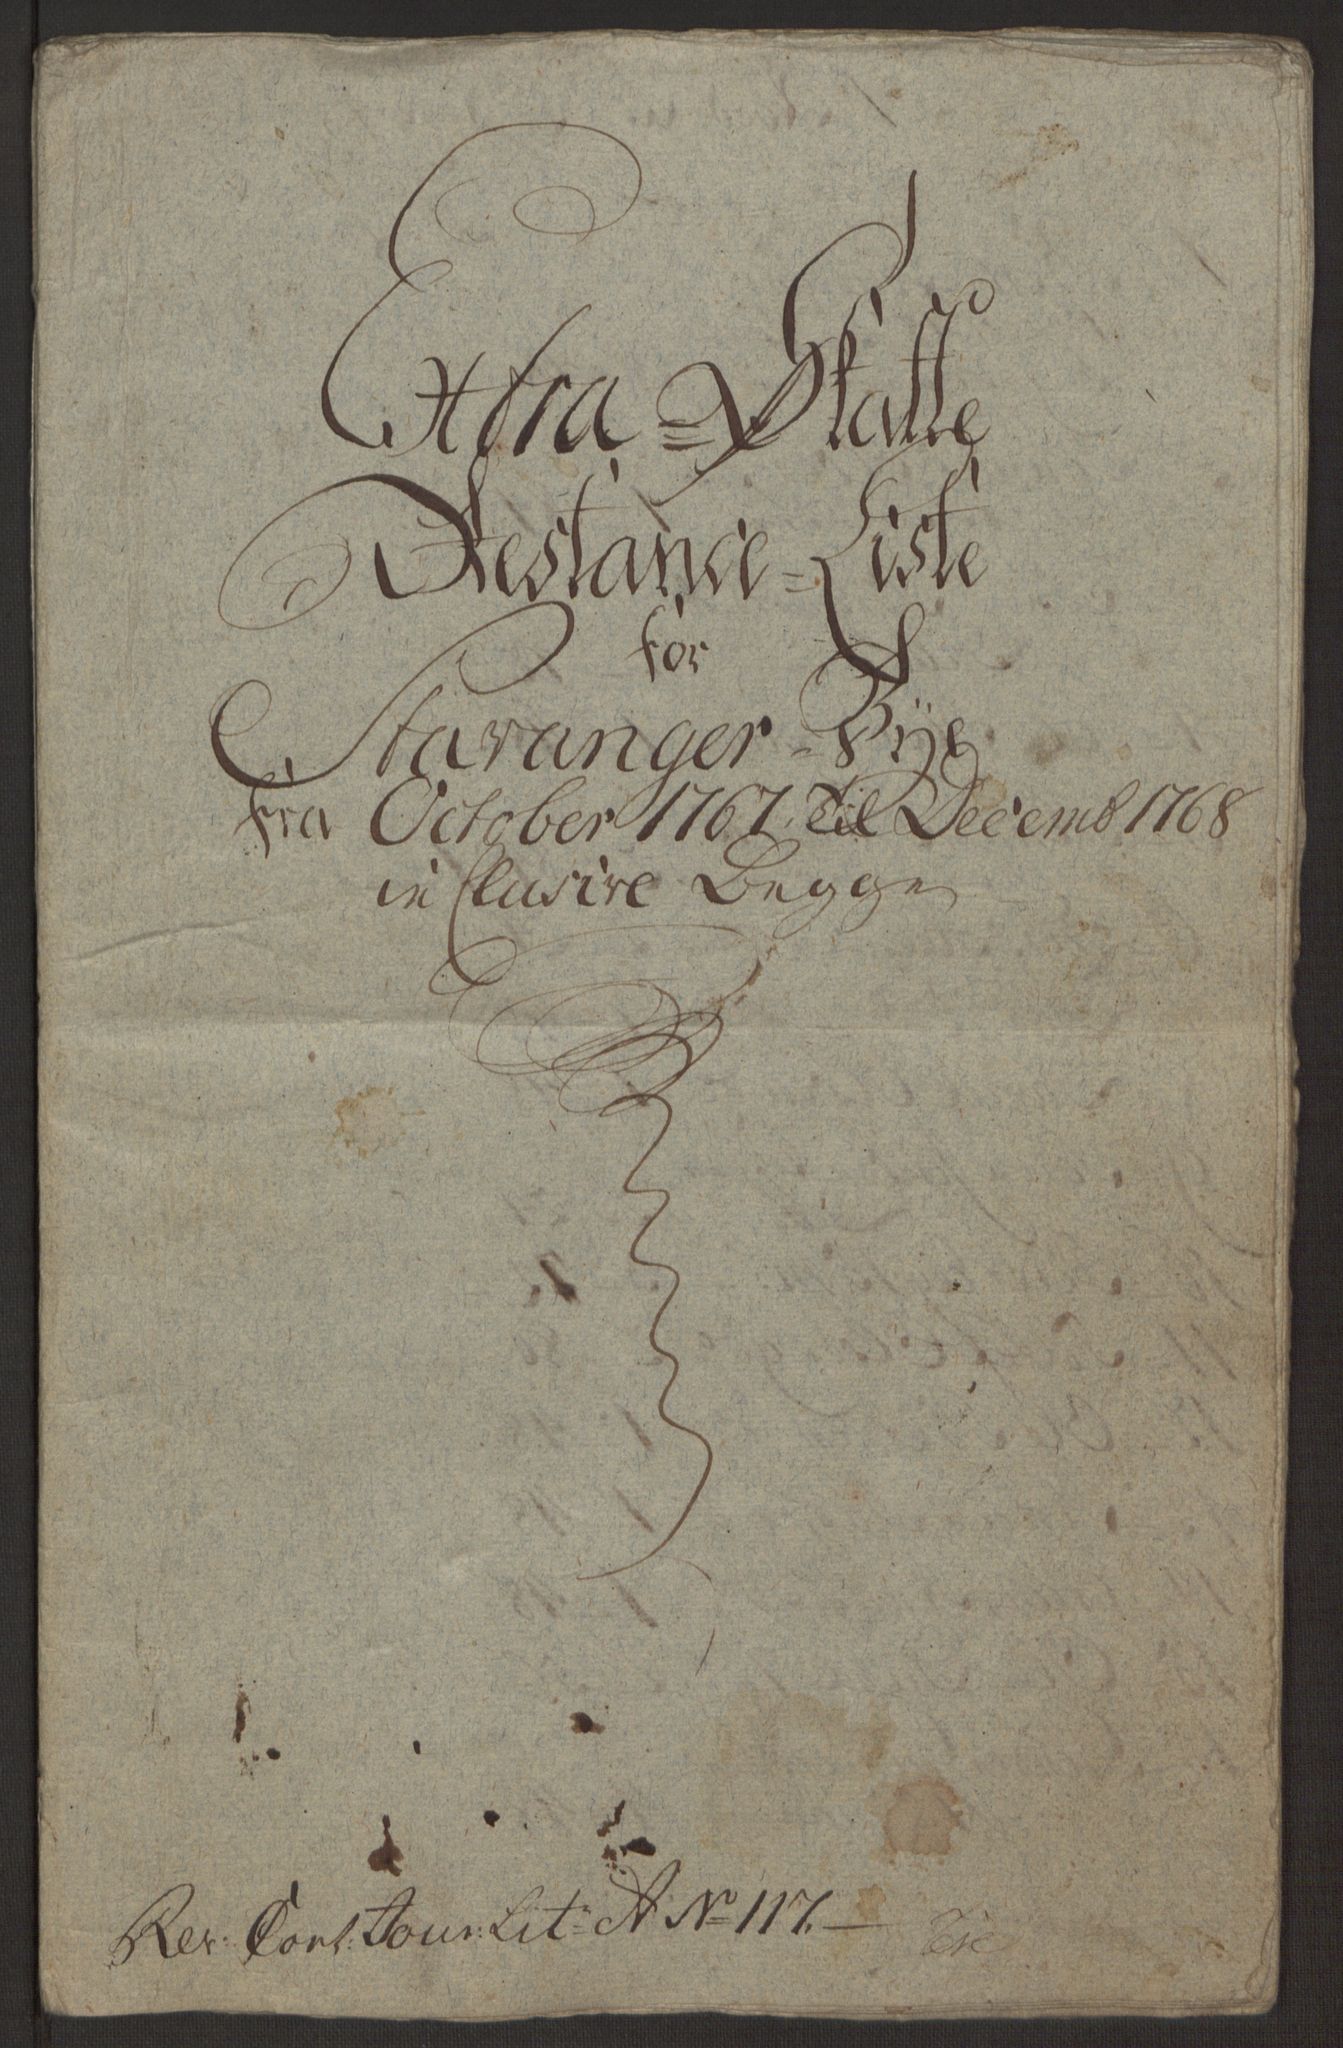 Extra = Skatte
Restance = Liste
for
Stavanger = Bÿe
fra October 1767 til Decemb 1768
inclusive Begge
Rev: Cont: Jour: Lit: A No 117.